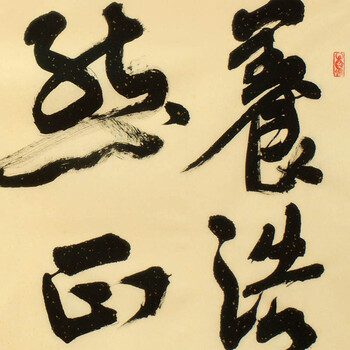 養浩
然正